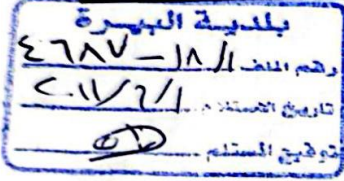 بلدية البيرة
رقم الملف ١٨/١ – ٤٦٨٧
تاريخ الاستلام ٢٠١١/٦/١
توقيع المستلم